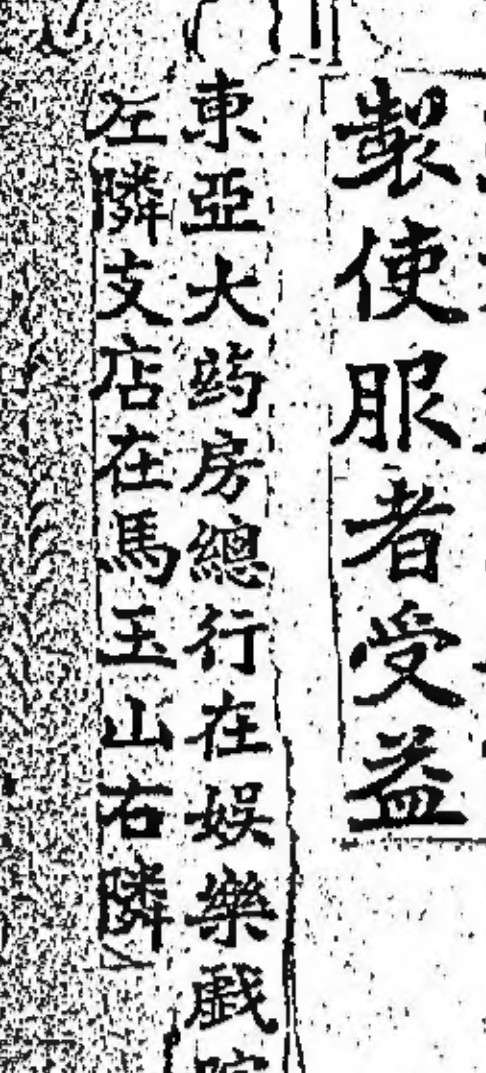 製使服者受益
東亞大药房總行在娛樂戲院
左隣支店在馬玉山右隣